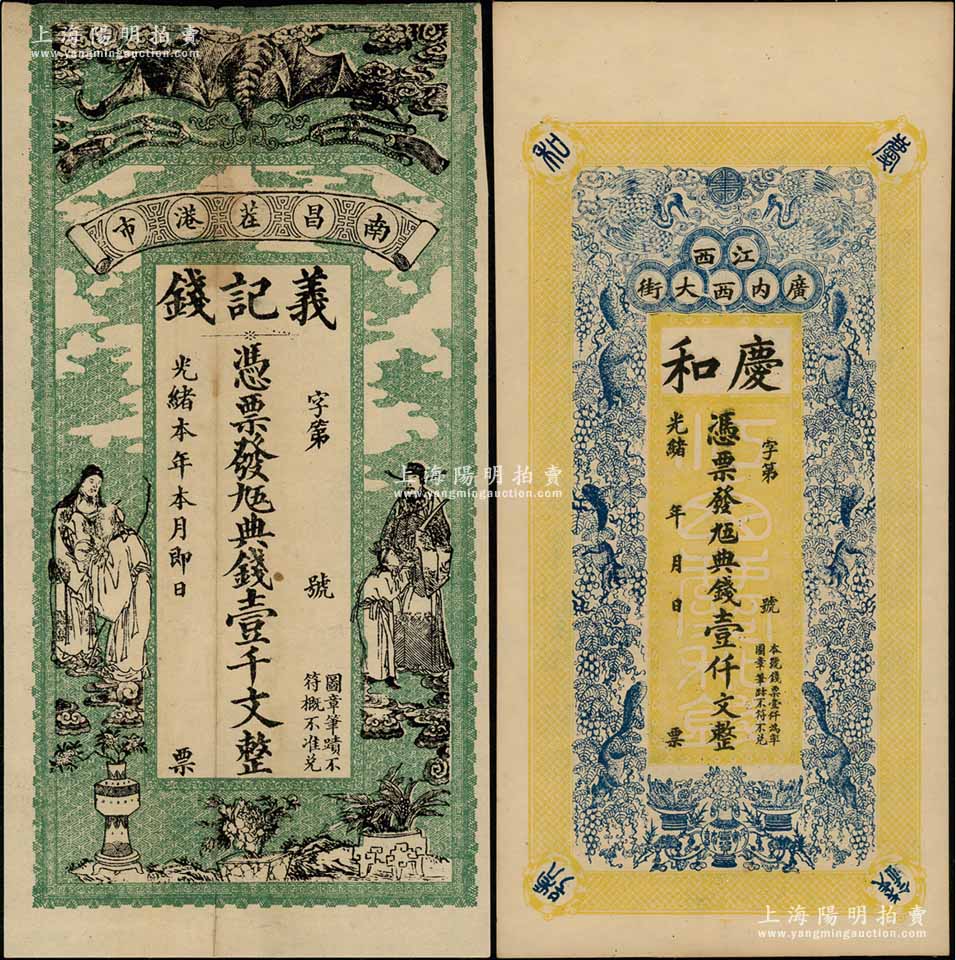 上海陽明拍賣
www.yangmingauction.com
南昌茬港市
義記錢
字第 號
憑票發兌典錢壹千文整
光緒本年本月即日 票
圖章筆蹟不
符概不准兌
和 慶
江西
廣内西大街
慶和
字第 號
憑票發兌典錢壹仟文整
光緒 年 月 日 票
本號錢票壹仟為率
圖章筆跡不符不兌
錢
上海陽明拍賣
www.yangmingauction.com
上海陽明拍賣
www.yangmingauction.com